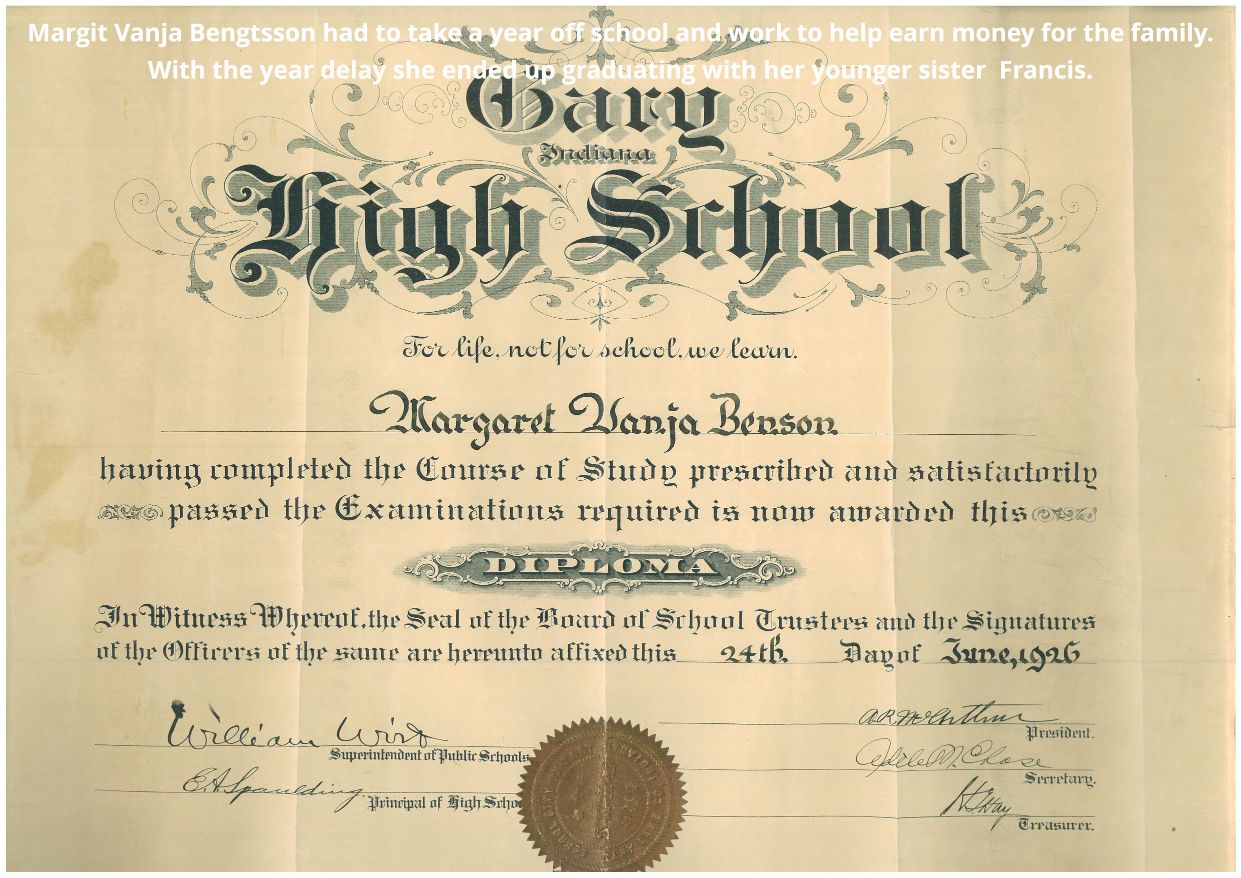 Margit Vanja Bengtsson had to take a year off school and work to help earn money for the family.
With the year delay she ended up graduating with her younger sister Francis.
Gary
Indiana
High School
For life, not for school, we learn.
Margaret Vanja Benson
having completed the Course of Study prescribed and satisfactorily
passed the Examinations required is now awarded this
DIPLOMA
In Witness Whereof, the Seal of the Board of School Trustees and the Signatures
of the Officers of the same are hereunto affixed this 24th. Day of June, 1926
William Wirt
Superintendent of Public Schools
E.A. Spaulding
Principal of High Scho
A R McArthur
President.
Adele M. Chase
Secretary.
H G Hay
Treasurer.